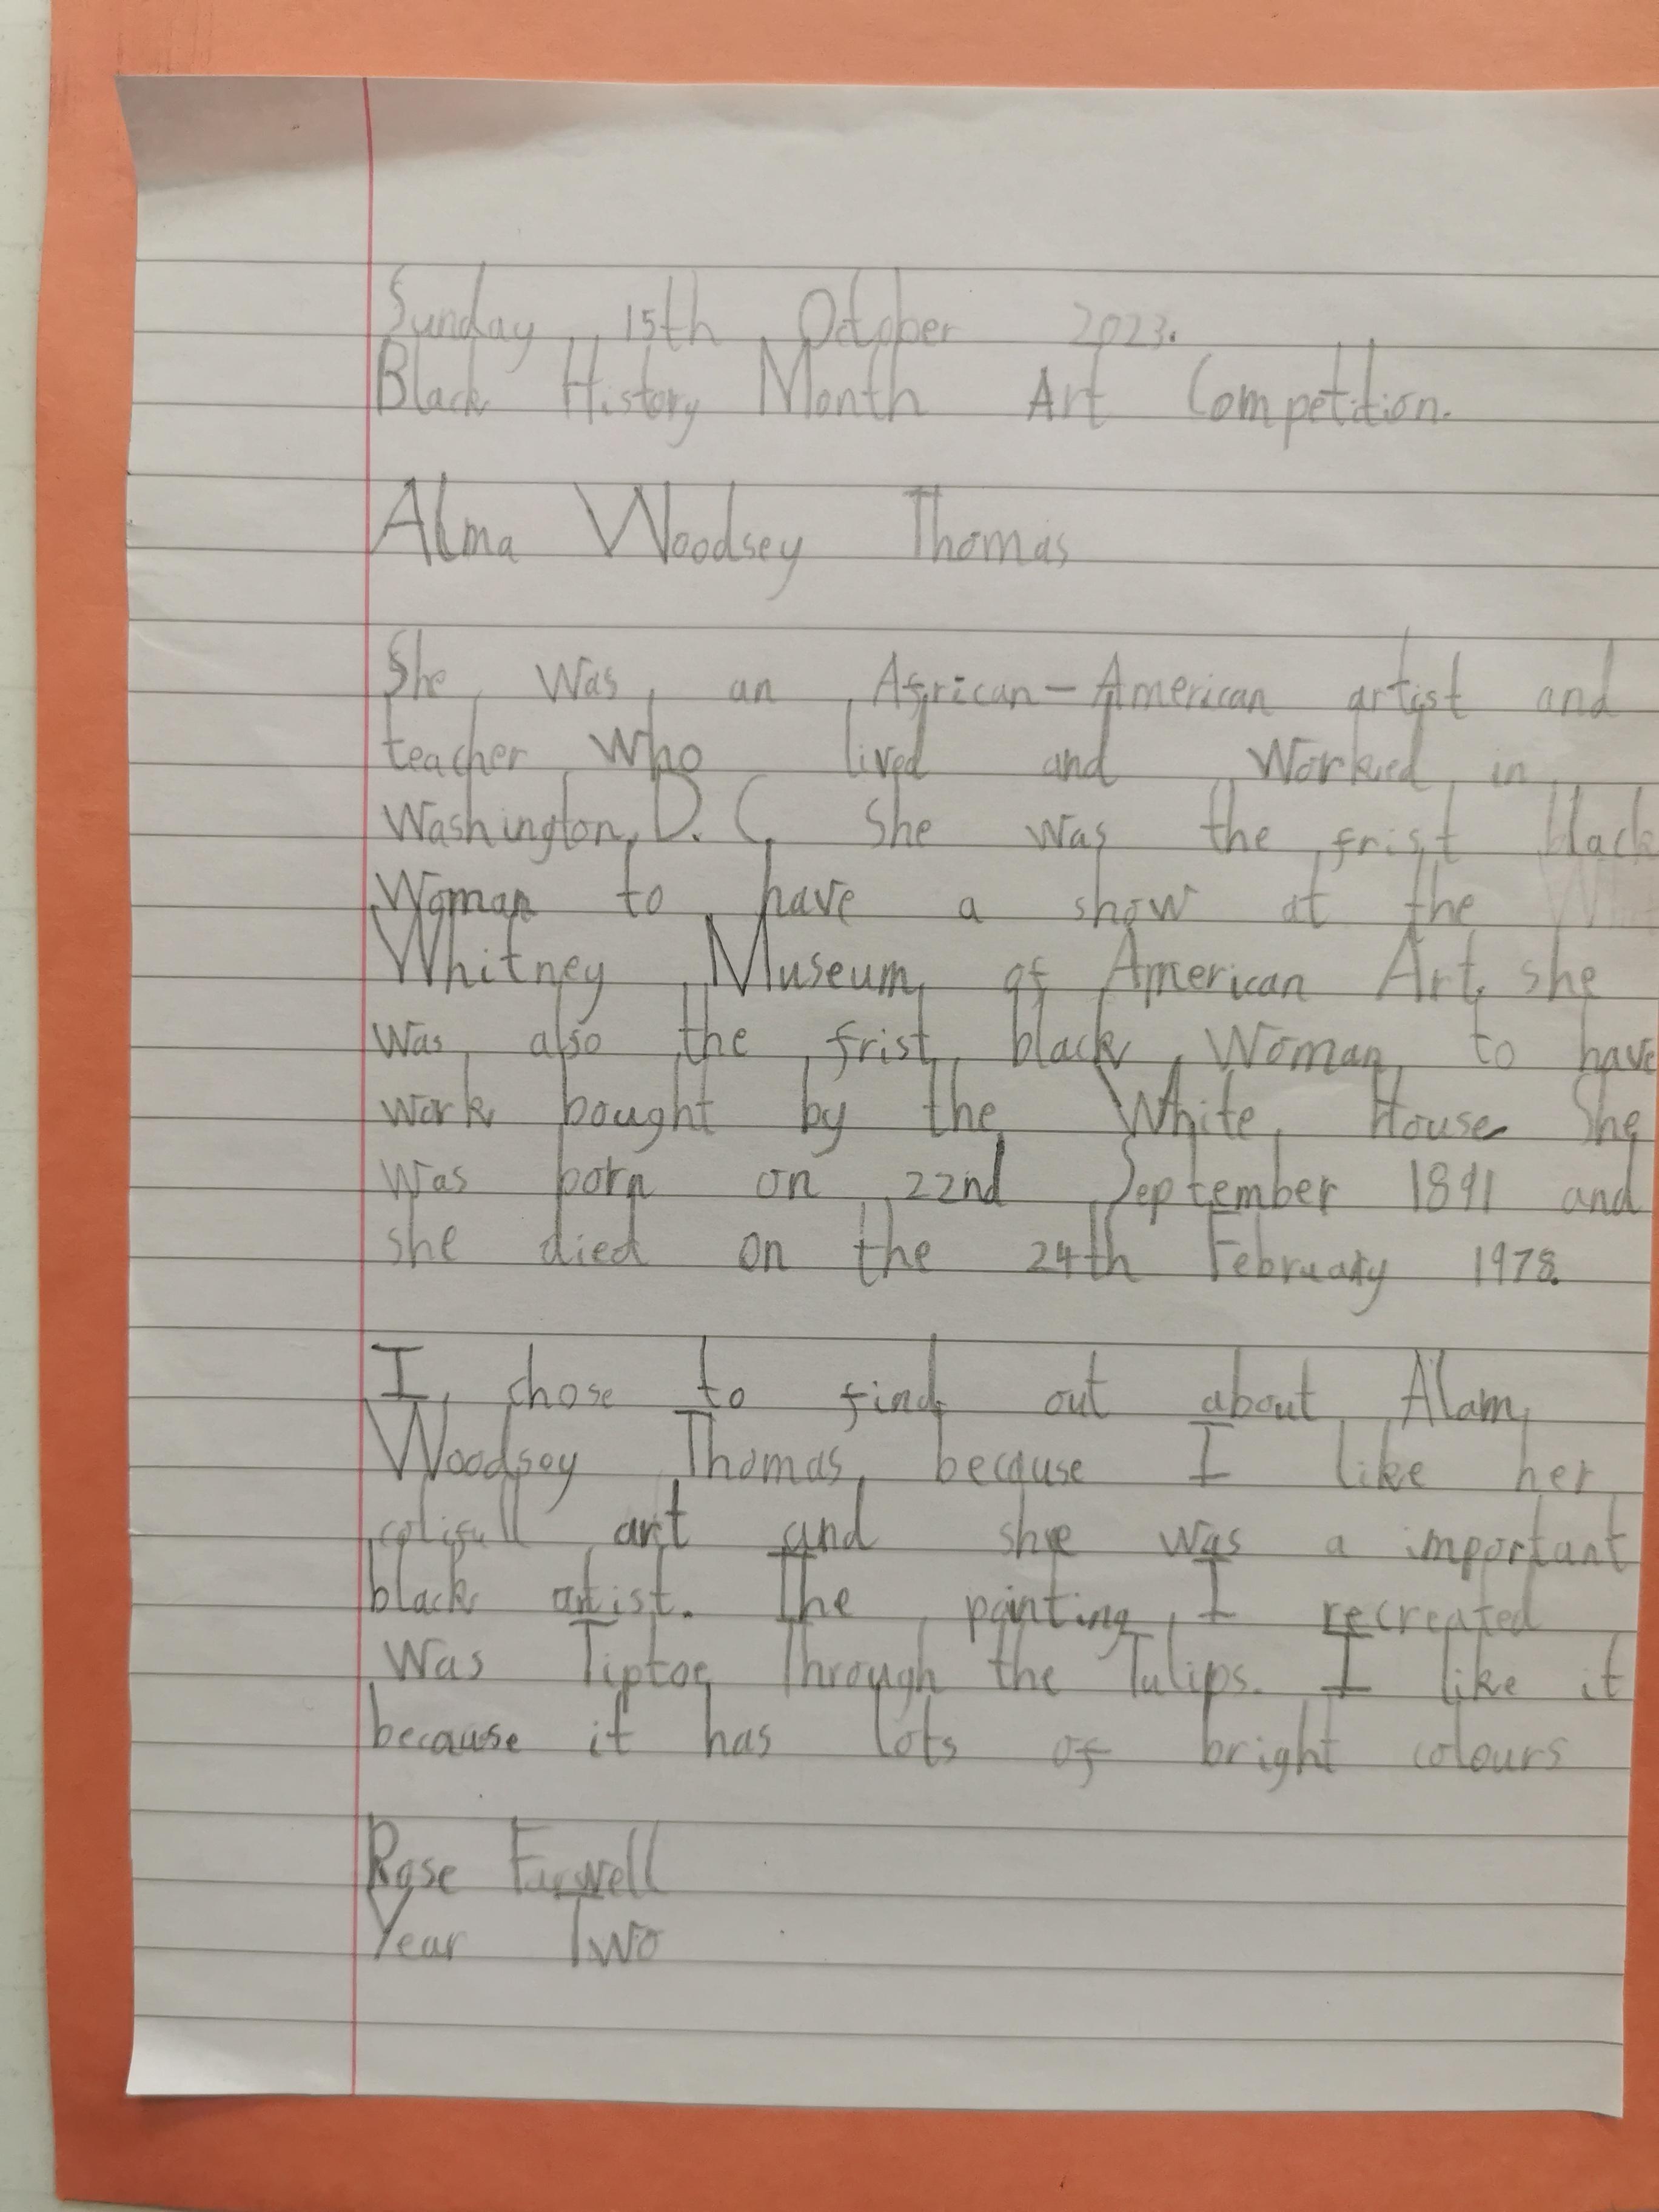 Sunday 15th October 2023.
Black History Month Art Competition.
Alma Woodsey Thomas
She was an African-American artist and
teacher who lived and worked in
Washington, D.C. She was the frist black
Woman to have a show at the
Whitney Museum of American Art. she
was also the frist black Woman to have
work bought by the White House. She
was born on 22nd September 1891 and
she died on the 24th February 1978.
I chose to find out about Alam
Woodsey Thomas because I like her
art and she was a important
black artist. The painting I recreated
was Tiptoe Through the Tulips. I like it
because it has lots of bright colours
Rose Farwell
Year Two